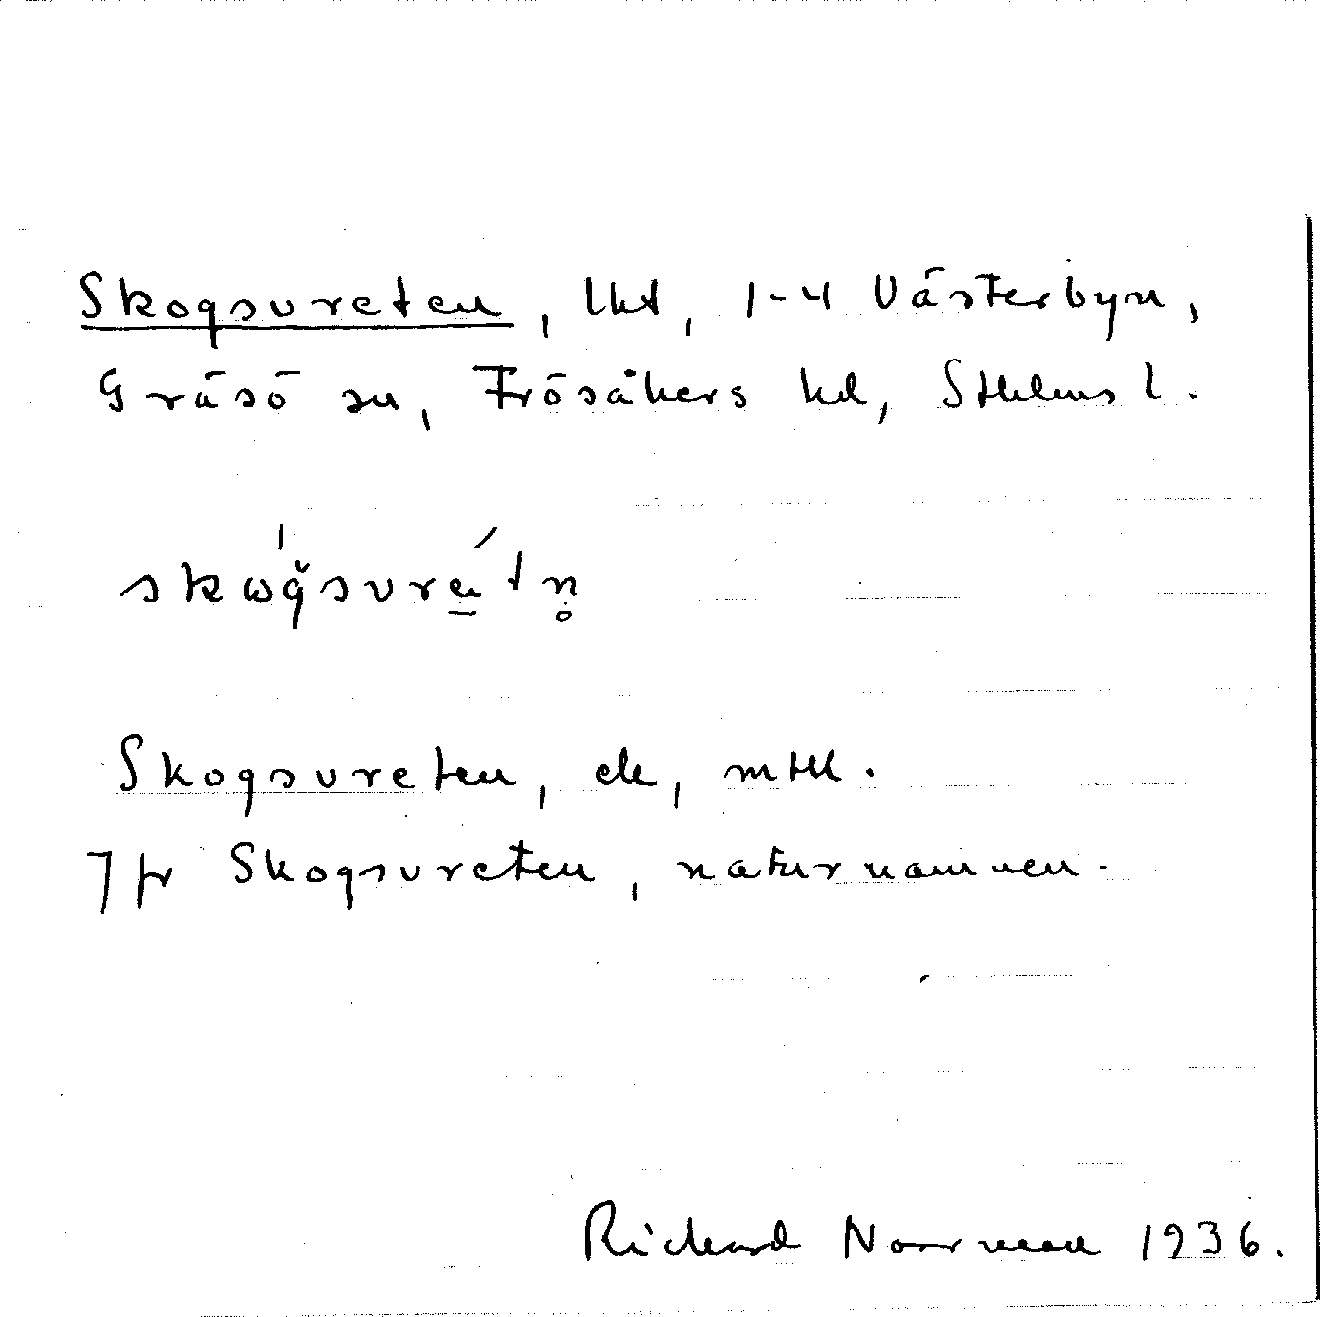 Skogsvreten, lht, 1-4 Västerbyn,
Gräsö sn, Frösåkers hd, Sthlms l.
skωg̊svrétn̥
Skogsvreten, ek, mtbl.
Jfr Skogsvreten, naturnamnen.
Richard Norrman 1936.